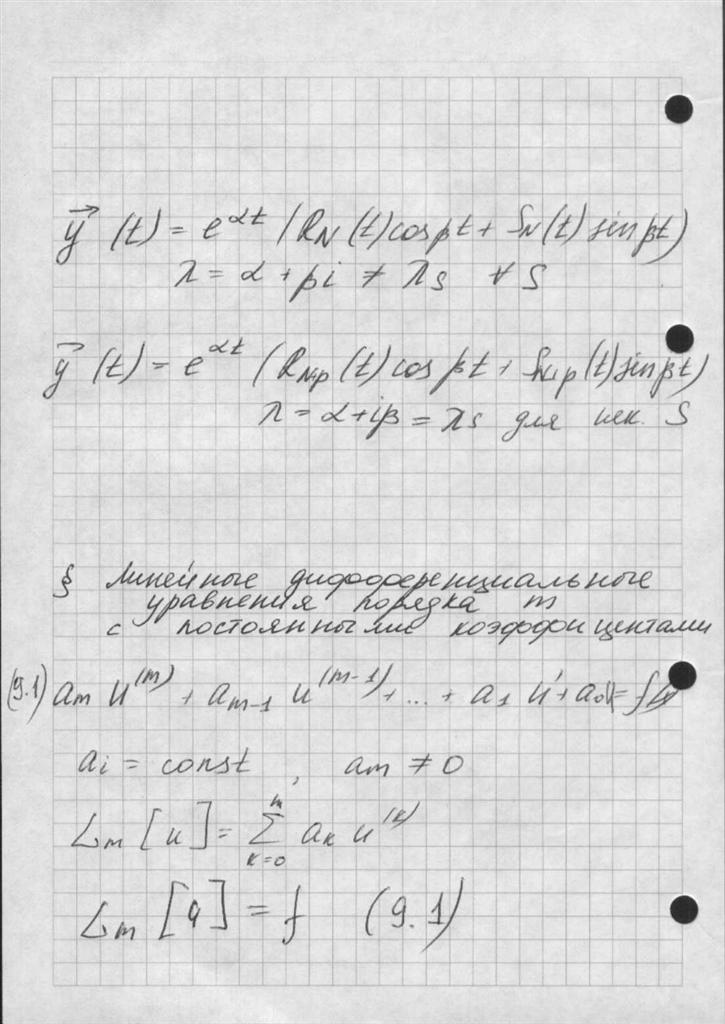 y⃗ (t) = e^{αt} (R_N (t) cos βt + S_N (t) sin βt)
λ = α + βi ≠ λ_s ∀ S
y⃗ (t) = e^{αt} (R_{N+p} (t) cos βt + S_{N+p} (t) sin βt)
λ = α + iβ = λ_s для нек. S
§ Линейные дифференциальные
уравнения порядка m
с постоянными коэффициентами
(9.1) a_m u^{(m)} + a_{m-1} u^{(m-1)} + ... + a_1 u' + a_0 u = f(t)
a_i = const , a_m ≠ 0
L_m [u] = ∑_{k=0}^{m} a_k u^{(k)}
L_m [u] = f (9.1)